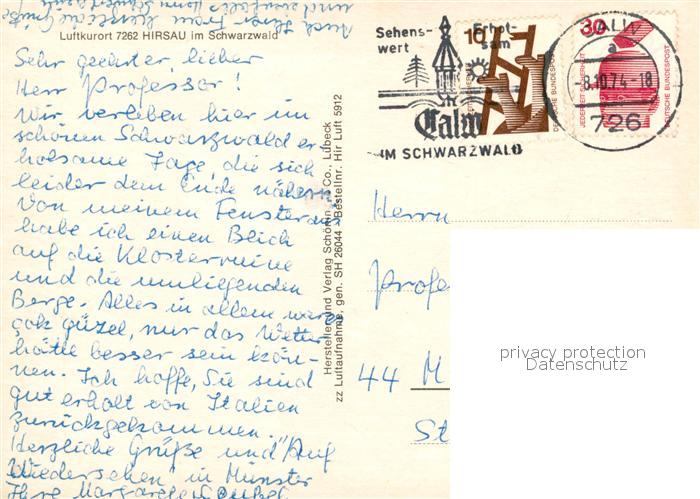 Luftkurort 7262 HIRSAU im Schwarzwald
Sehr geehrter, lieber
Herr Professor!
Wir verleben hier im
schönen Schwarzwald er-
holsame Tage, die sich
leider dem Ende nähern.
Von meinem Fenster aus
habe ich einen Blick
auf die Klosterruine
und die umliegenden
Berge. Alles in allem war es
çok güzel, nur das Wetter
hätte besser sein kön-
nen. Ich hoffe, Sie sind
gut erholt von Italien
zurückgekommen.
Herzliche Grüße und "Auf
Wiedersehen in Münster
Ihre Margarete
Auch Ihrer Frau
herzliche Grüße
und
Herstellung und Verlag Schöning & Co., Lübeck
zz Luftaufnahme, gen. SH 26044 Bestellnr. Hir Luft 5912
Sehens-
wert
Erhol-
sam
Calw
IM SCHWARZWALD
10
DEUTSCHE BUNDESPOST
30
JEDERZEIT SICHERHEIT
DEUTSCHE BUNDESPOST
CALW
a
-8.10.74-18
726
Herrn
Profe
44 M
St
privacy protection
Datenschutz